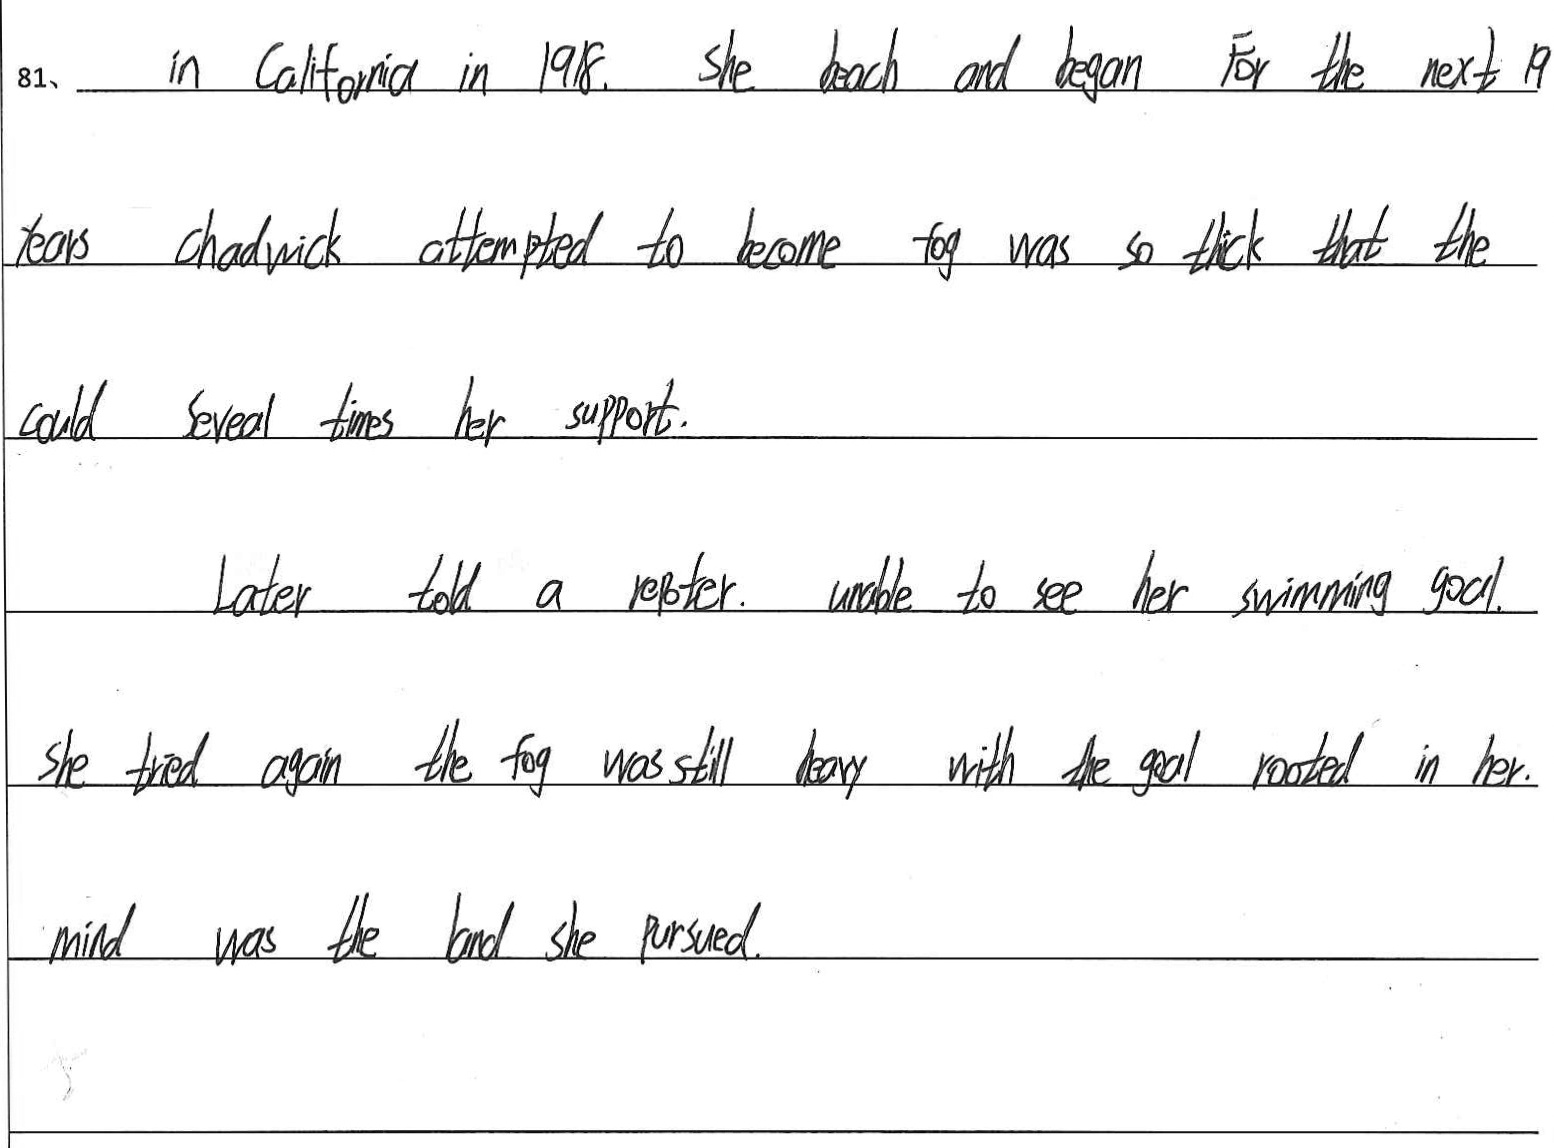 81、 in California in 1918. She beach and began For the next 19
tears chadwick attempted to become fog was so thick that the
could seveal times her support.
Later told a repoter. unable to see her swimming goal.
she tried again the fog was still heavy with the goal rooted in her.
mind was the land she pursued.